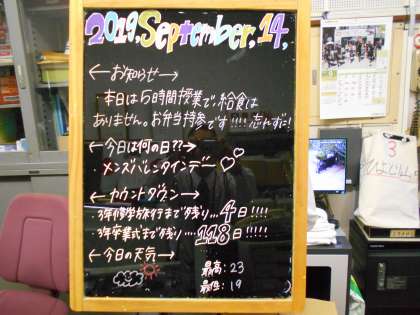 2019, September, 14,
←お知らせ→
・本日は5時間授業で、給食は
ありません。お弁当持参です!!!! 忘れずに!
←今日は何の日??→
・メンズバレンタインデー♡♡
←カウントダウン→
・3年修学旅行まで残り…4日!!!!
・3年卒業式まで残り…118日!!!!!
←今日の天気→
最高:23
最低:19
3